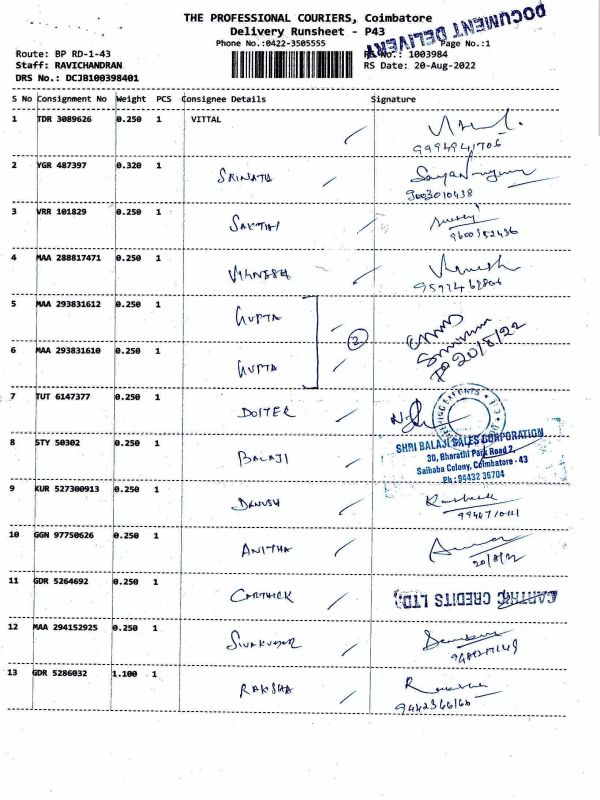 THE PROFESSIONAL COURIERS, Coimbatore
Delivery Runsheet - P43
DOCUMENT DELIVERY
Phone No.:0422-3505555
Page No.:1
Route: BP RD-1-43
RS No.: 1003984
Staff: RAVICHANDRAN
RS Date: 20-Aug-2022
DRS No.: DCJB100398401
S No Consignment No Weight PCS Consignee Details Signature
1 TDR 3089626 0.250 1 VITTAL
9994941706
2 YGR 487397 0.320 1 SRINATH
9003010438
3 VRR 101829 0.250 1 SAKTHI
9600952436
4 MAA 288817471 0.250 1 VIGNESH Vignesh
5 MAA 293831612 0.250 1 GUPTA
2
20/8/22
6 MAA 293831610 0.250 1 GUPTA
7 TUT 6147377 0.250 1 DOITER
8 STY 50302 0.250 1 BALAJI
SHRI BALAJI SALES CORPORATION
30, Bharathi Park Road 2,
Saibaba Colony, Coimbatore - 43
Ph : 94432 36704
9 KUR 527300913 0.250 1 DANUSH
10 GGN 97750626 0.250 1 ANITHA
20/8/22
11 GDR 5264692 0.250 1 CARTHICK
CREDITS LTD.
12 MAA 294152925 0.250 1 SIVAKUMAR
13 GDR 5286032 1.100 1 RAKSHA
9442366166